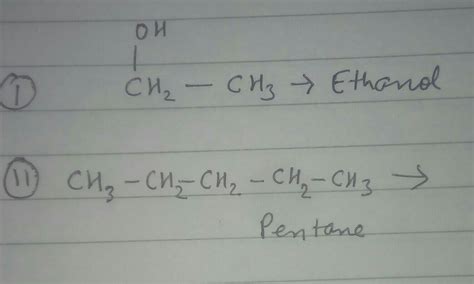 OH
|
(I) CH₂ — CH₃ → Ethanol
(II) CH₃ – CH₂ – CH₂ – CH₂ – CH₃ →
Pentane